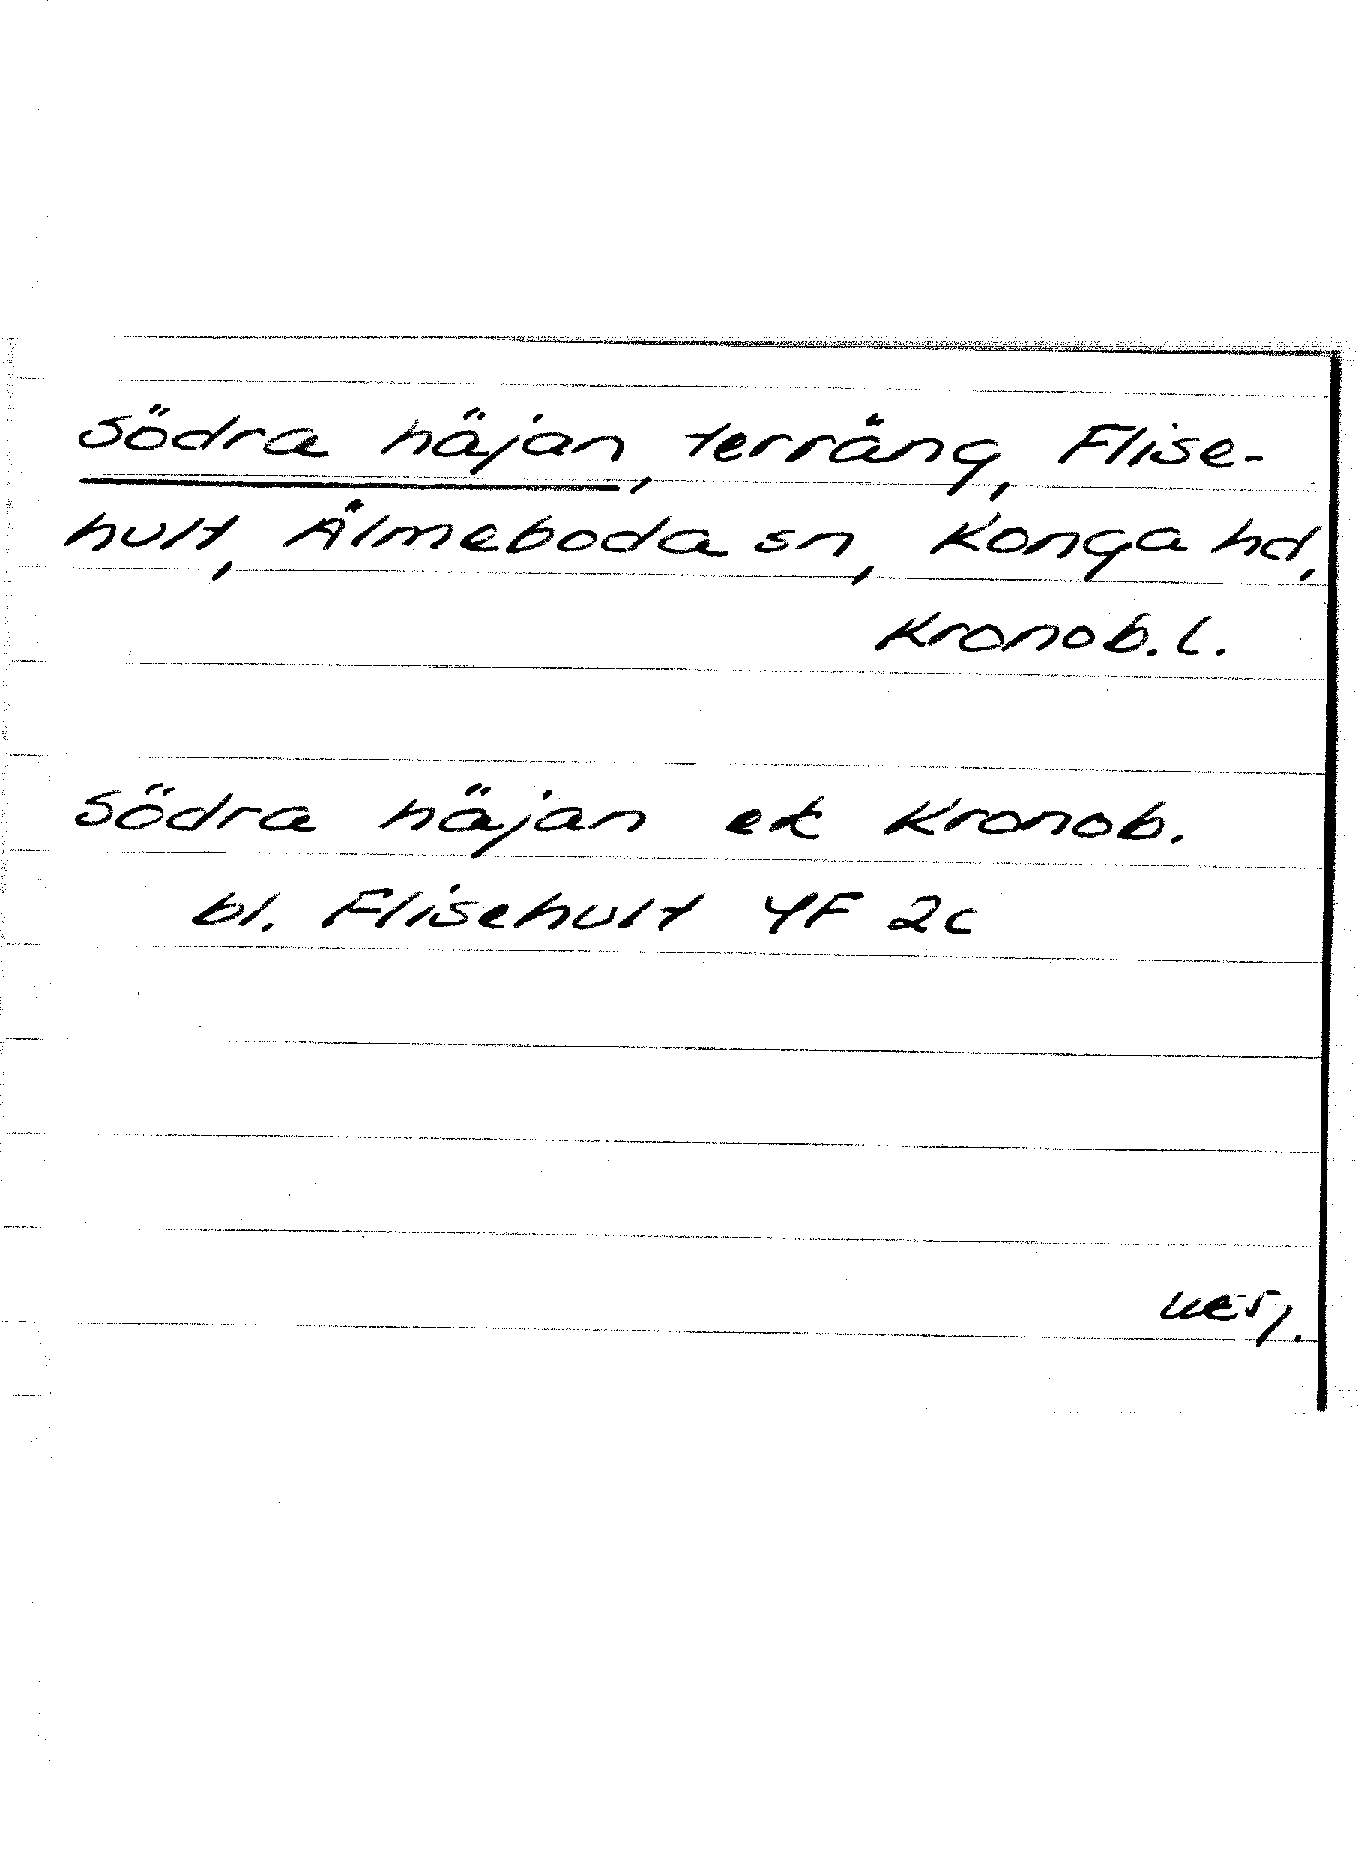 södra häjan, terräng, Flise-
hult, Älmeboda sn, Konga hd,
Kronob. l.
södra häjan ek Kronob.
bl. Flisehult 4F 2c